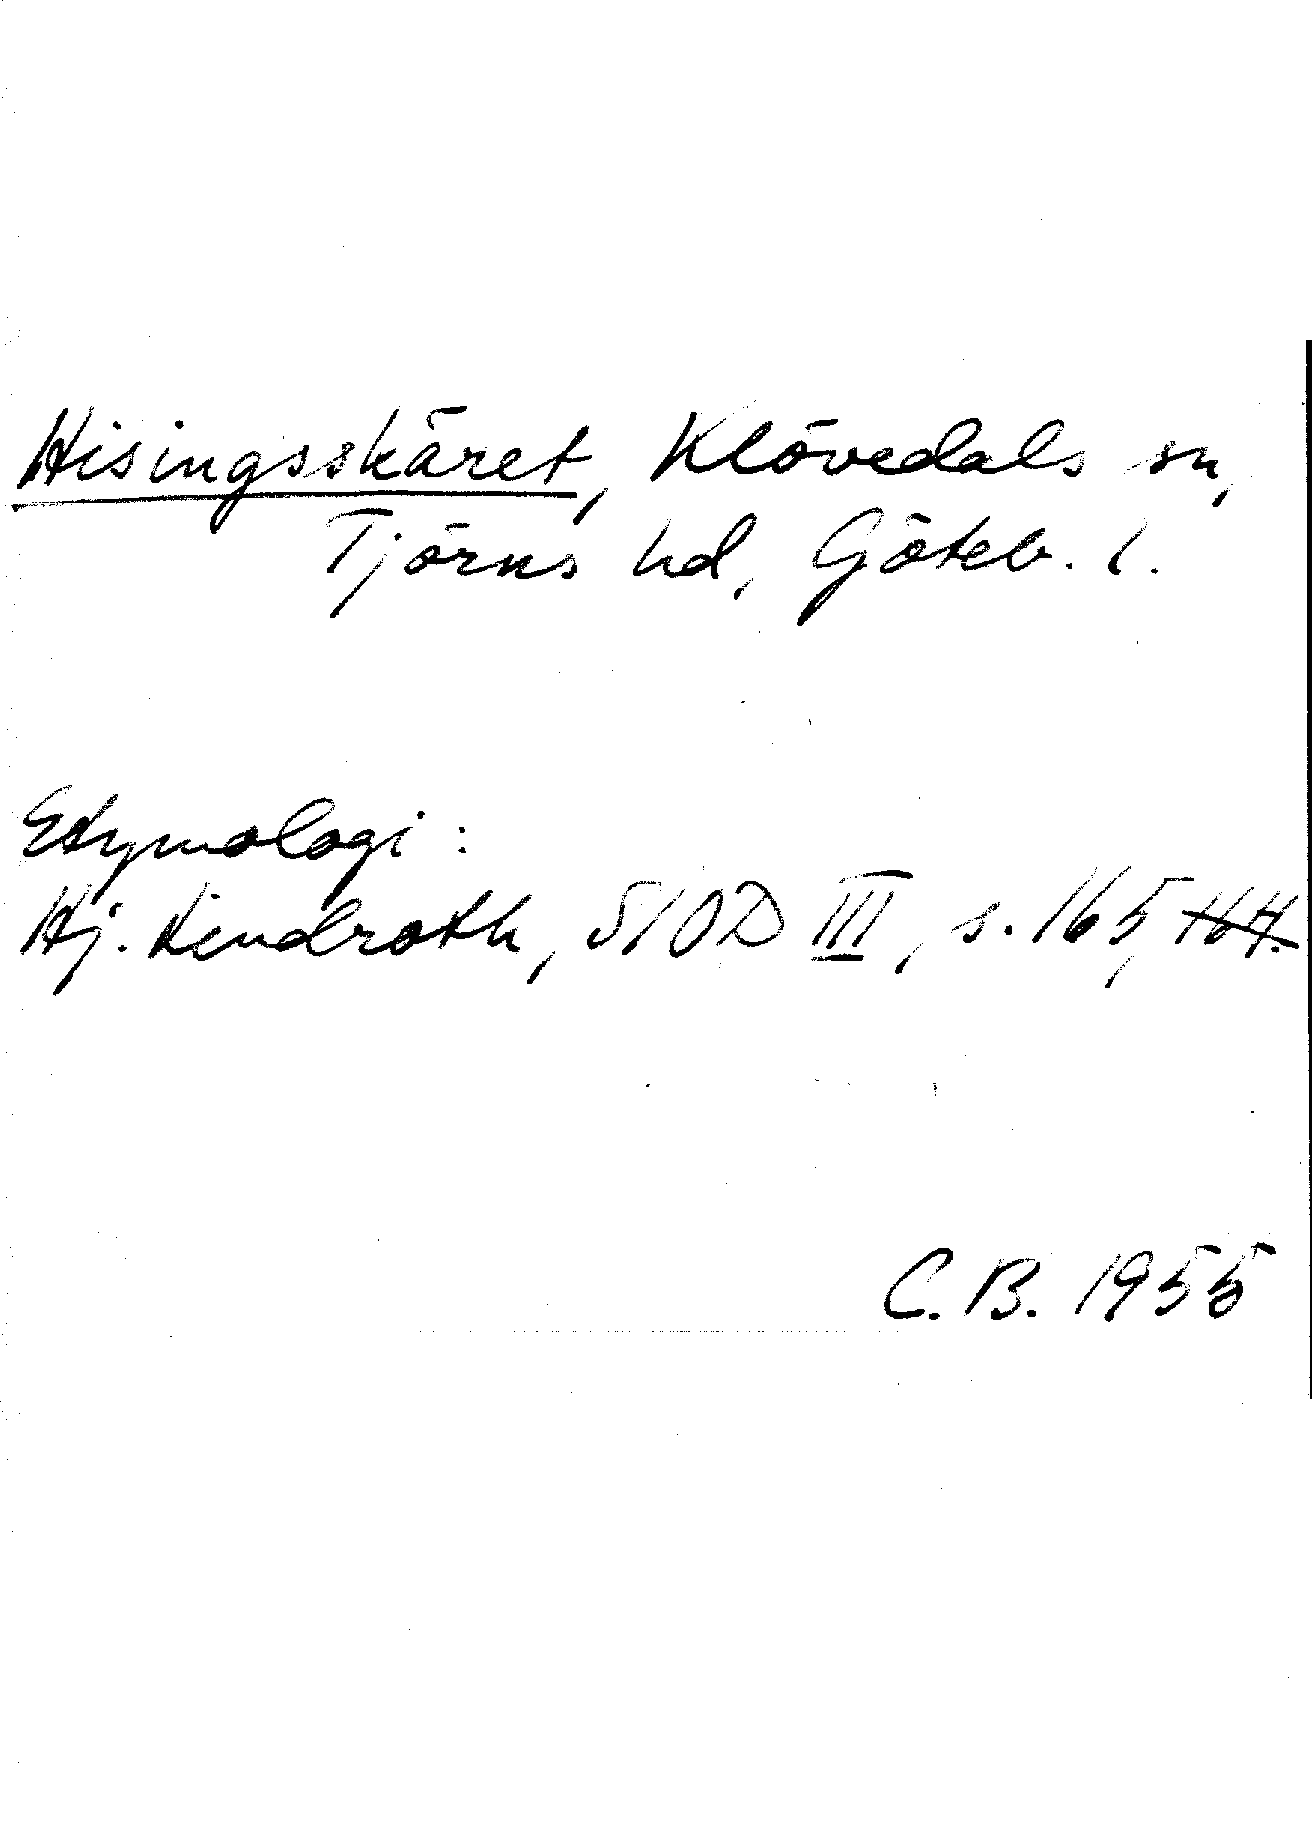 Hisingsskäret, Klövedals sn,
Tjörns hd, Göteb. l.
Etymologi:
Hj. Lindroth, SIOD III, s. 165,
C.B. 1955